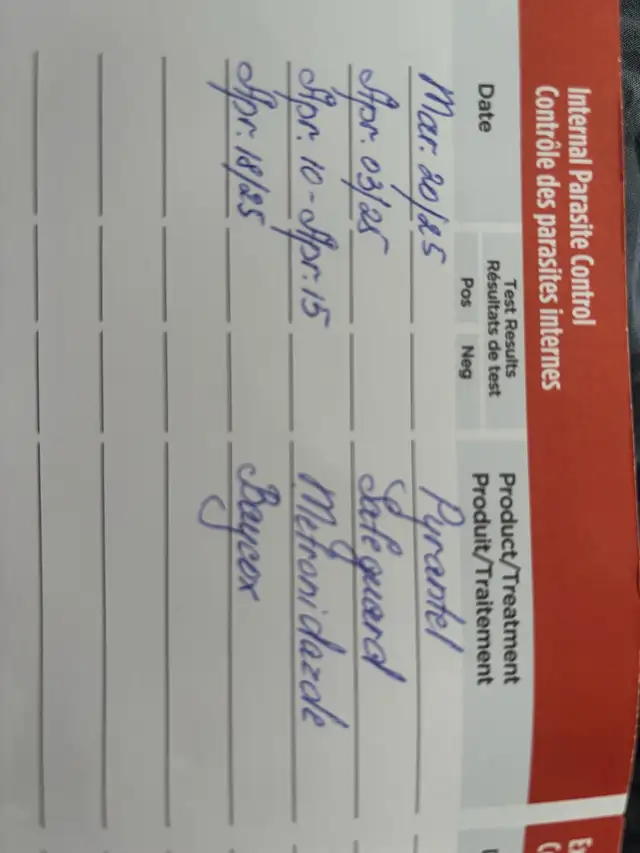 Internal Parasite Control
Contrôle des parasites internes
Date
Test Results
Résultats de test
Pos Neg
Product/Treatment
Produit/Traitement
Mar. 20/25 Pyrantel
Apr. 03/25 Safeguard
Apr. 10 - Apr. 15 Metronidazole
Apr. 18/25 Baycox